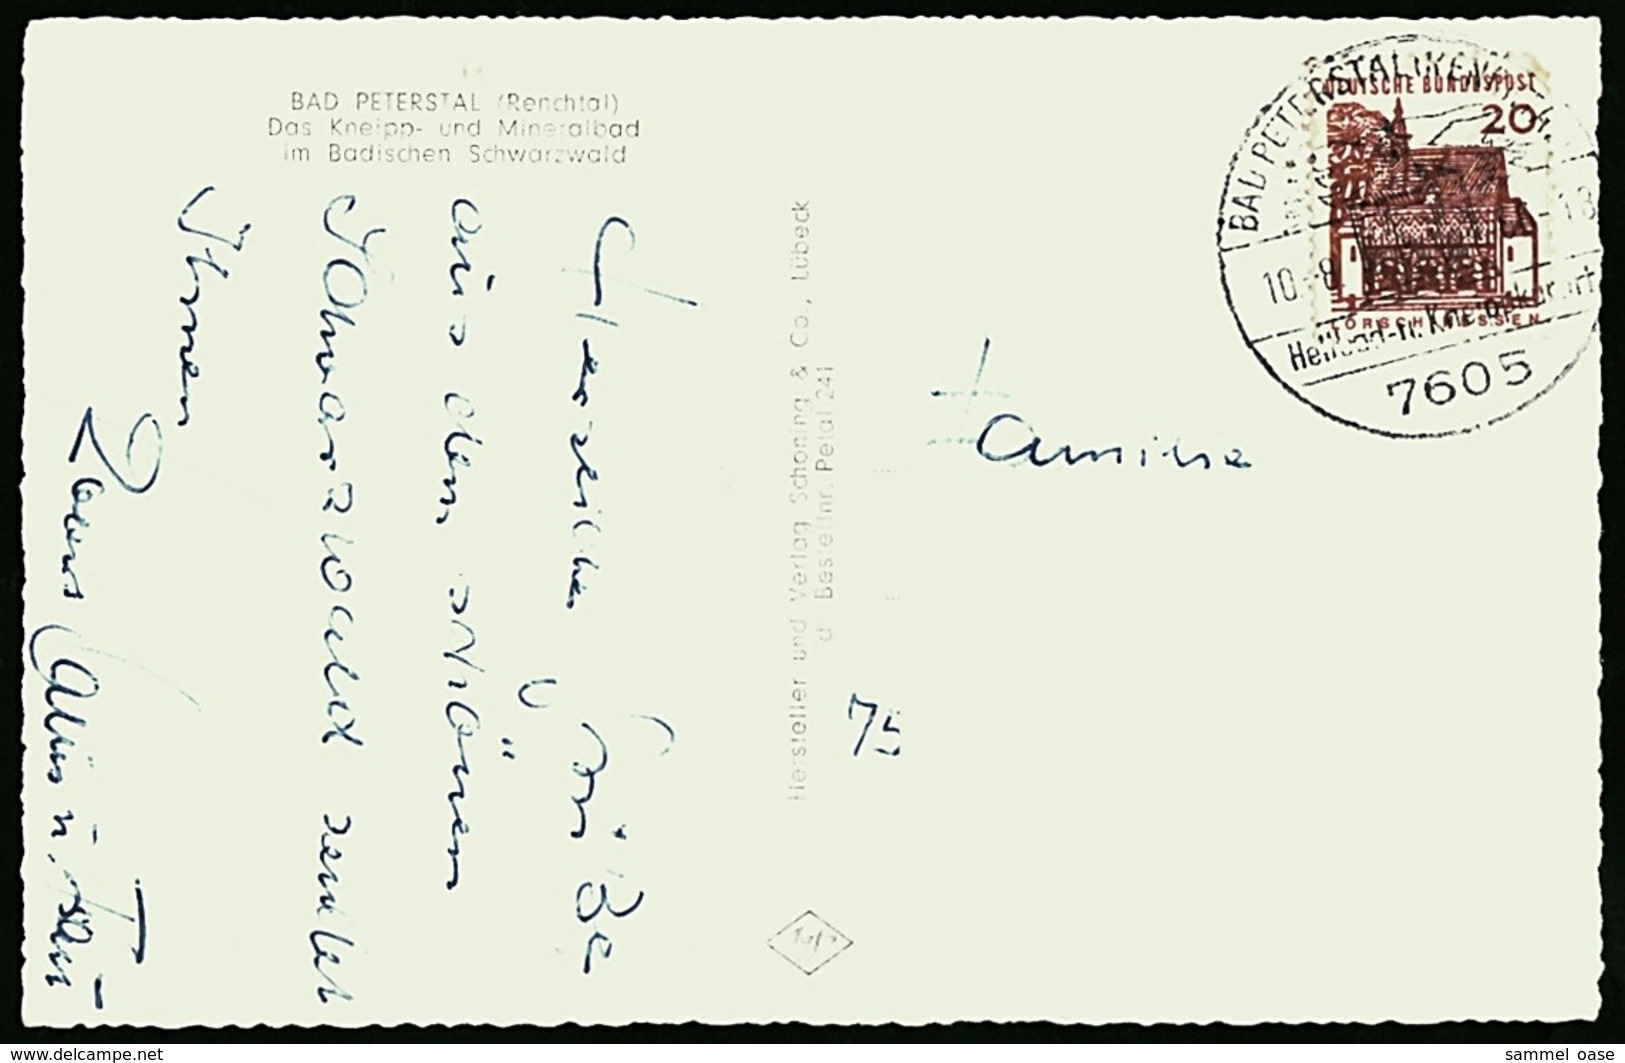 BAD PETERSTAL (Renchtal)
Das Kneipp- und Mineralbad
im Badischen Schwarzwald
Herzliche Grüße
aus dem schönen
Schwarzwald sendet
Ihnen
u. Frau
Hersteller und Verlag Schöning & Co., Lübeck
d Bestellnr. Petal 241
Familie
75
DEUTSCHE BUNDESPOST
20
LORSCH HESSEN
BAD PETERSTAL (RENCHTAL)
10.-8
-18
Heilbad-u. Kneippkurort
7605
www.delcampe.net
sammel_oase